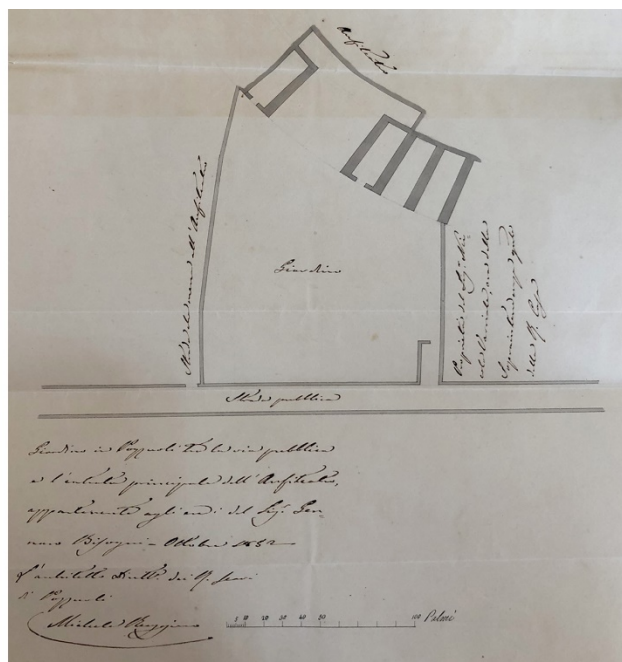 Anfiteatro
Strada che mena all'Anfiteatro
Giardino
Proprietà del Sig.
Soprintendenza
della R. Casa
Strada pubblica
Giardino in Pozzuoli tra la via pubblica
e l'entrata principale dell'Anfiteatro,
appartenente agli eredi del Sig. Gen
naro Ottobre 1852
L'architetto Dirett. dei R. Scavi
di Pozzuoli
Michele Ruggiero
5 10 20 30 40 50 100 Palmi